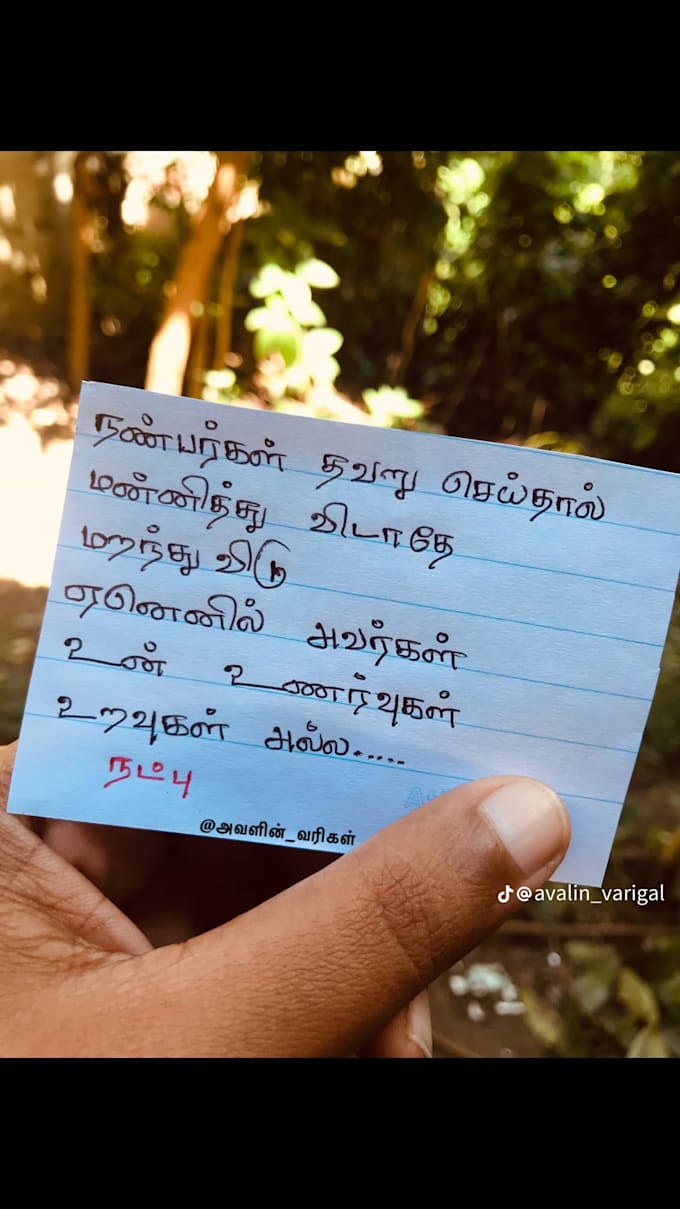 நண்பர்கள் தவறு செய்தால்
மன்னித்து விடாதே
மறந்து விடு
ஏனெனில் அவர்கள்
உன் உணர்வுகள்
உறவுகள் அல்ல.....
நட்பு
@அவளின்_வரிகள்
@avalin_varigal